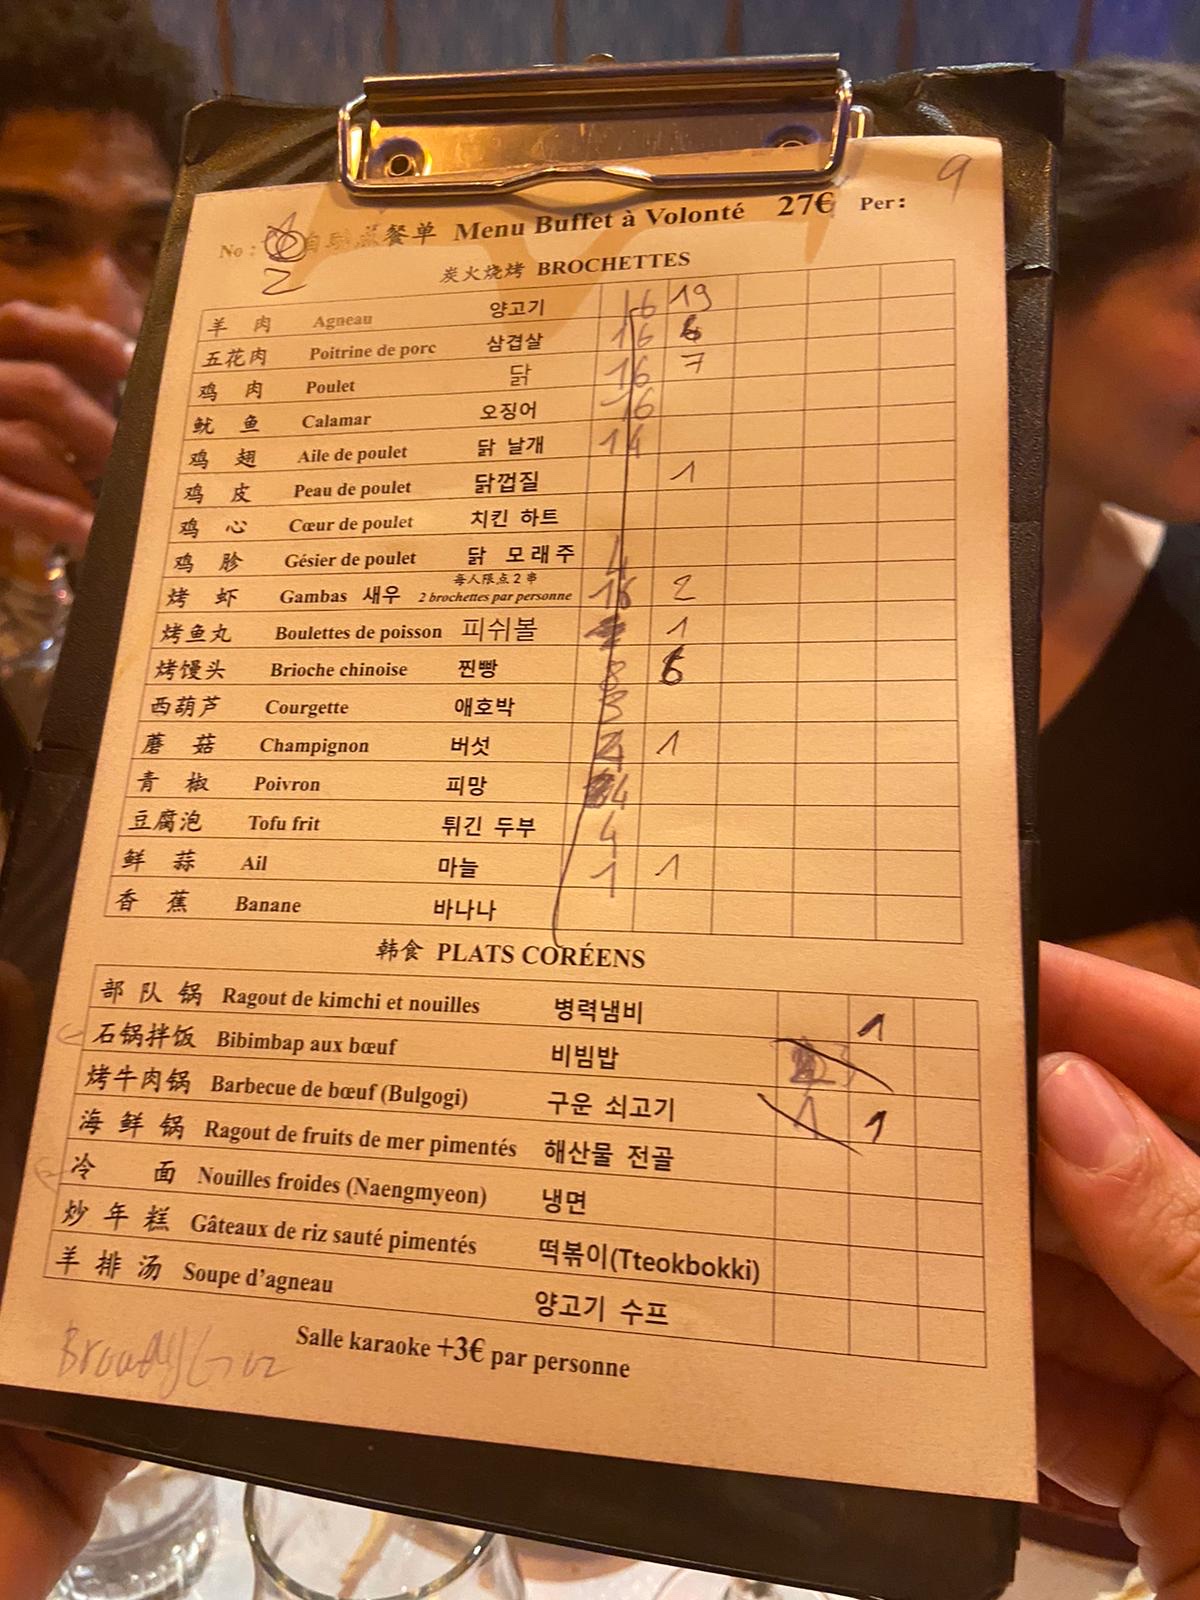 9
No : 自助点餐单 Menu Buffet à Volonté 27€ Per:
2
炭火烧烤 BROCHETTES
羊 肉 Agneau 양고기 16 19
五花肉 Poitrine de porc 삼겹살 16 6
鸡 肉 Poulet 닭 16 7
鱿 鱼 Calamar 오징어 16
鸡 翅 Aile de poulet 닭 날개 14
鸡 皮 Peau de poulet 닭껍질 1
鸡 心 Cœur de poulet 치킨 하트
鸡 胗 Gésier de poulet 닭 모래주 4
每人限点 2 串
烤 虾 Gambas 새우 2 brochettes par personne 16 2
烤鱼丸 Boulettes de poisson 피쉬볼 1
烤馒头 Brioche chinoise 찐빵 8 6
西葫芦 Courgette 애호박 3
蘑 菇 Champignon 버섯 1
青 椒 Poivron 피망 4
豆腐泡 Tofu frit 튀긴 두부 4
鲜 蒜 Ail 마늘 1 1
香 蕉 Banane 바나나
韩食 PLATS CORÉENS
部 队 锅 Ragout de kimchi et nouilles 병력냄비 1
石锅拌饭 Bibimbap aux bœuf 비빔밥
烤牛肉锅 Barbecue de bœuf (Bulgogi) 구운 쇠고기 1 1
海 鲜 锅 Ragout de fruits de mer pimentés 해산물 전골
冷 面 Nouilles froides (Naengmyeon) 냉면
炒 年 糕 Gâteaux de riz sauté pimentés 떡볶이(Tteokbokki)
羊 排 汤 Soupe d'agneau 양고기 수프
Salle karaoke +3€ par personne